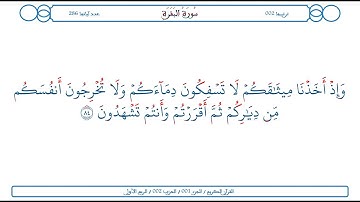 ترتيبها 002
سُورَةُ البَقَرَةِ
عدد آياتها 286
وَإِذْ أَخَذْنَا مِيثَـٰقَكُمْ لَا تَسْفِكُونَ دِمَآءَكُمْ وَلَا تُخْرِجُونَ أَنفُسَكُم
مِّن دِيَـٰرِكُمْ ثُمَّ أَقْرَرْتُمْ وَأَنتُمْ تَشْهَدُونَ ٨٤
القرآن الكريم / الجزء 001 / الحزب 002 / الربع الأول